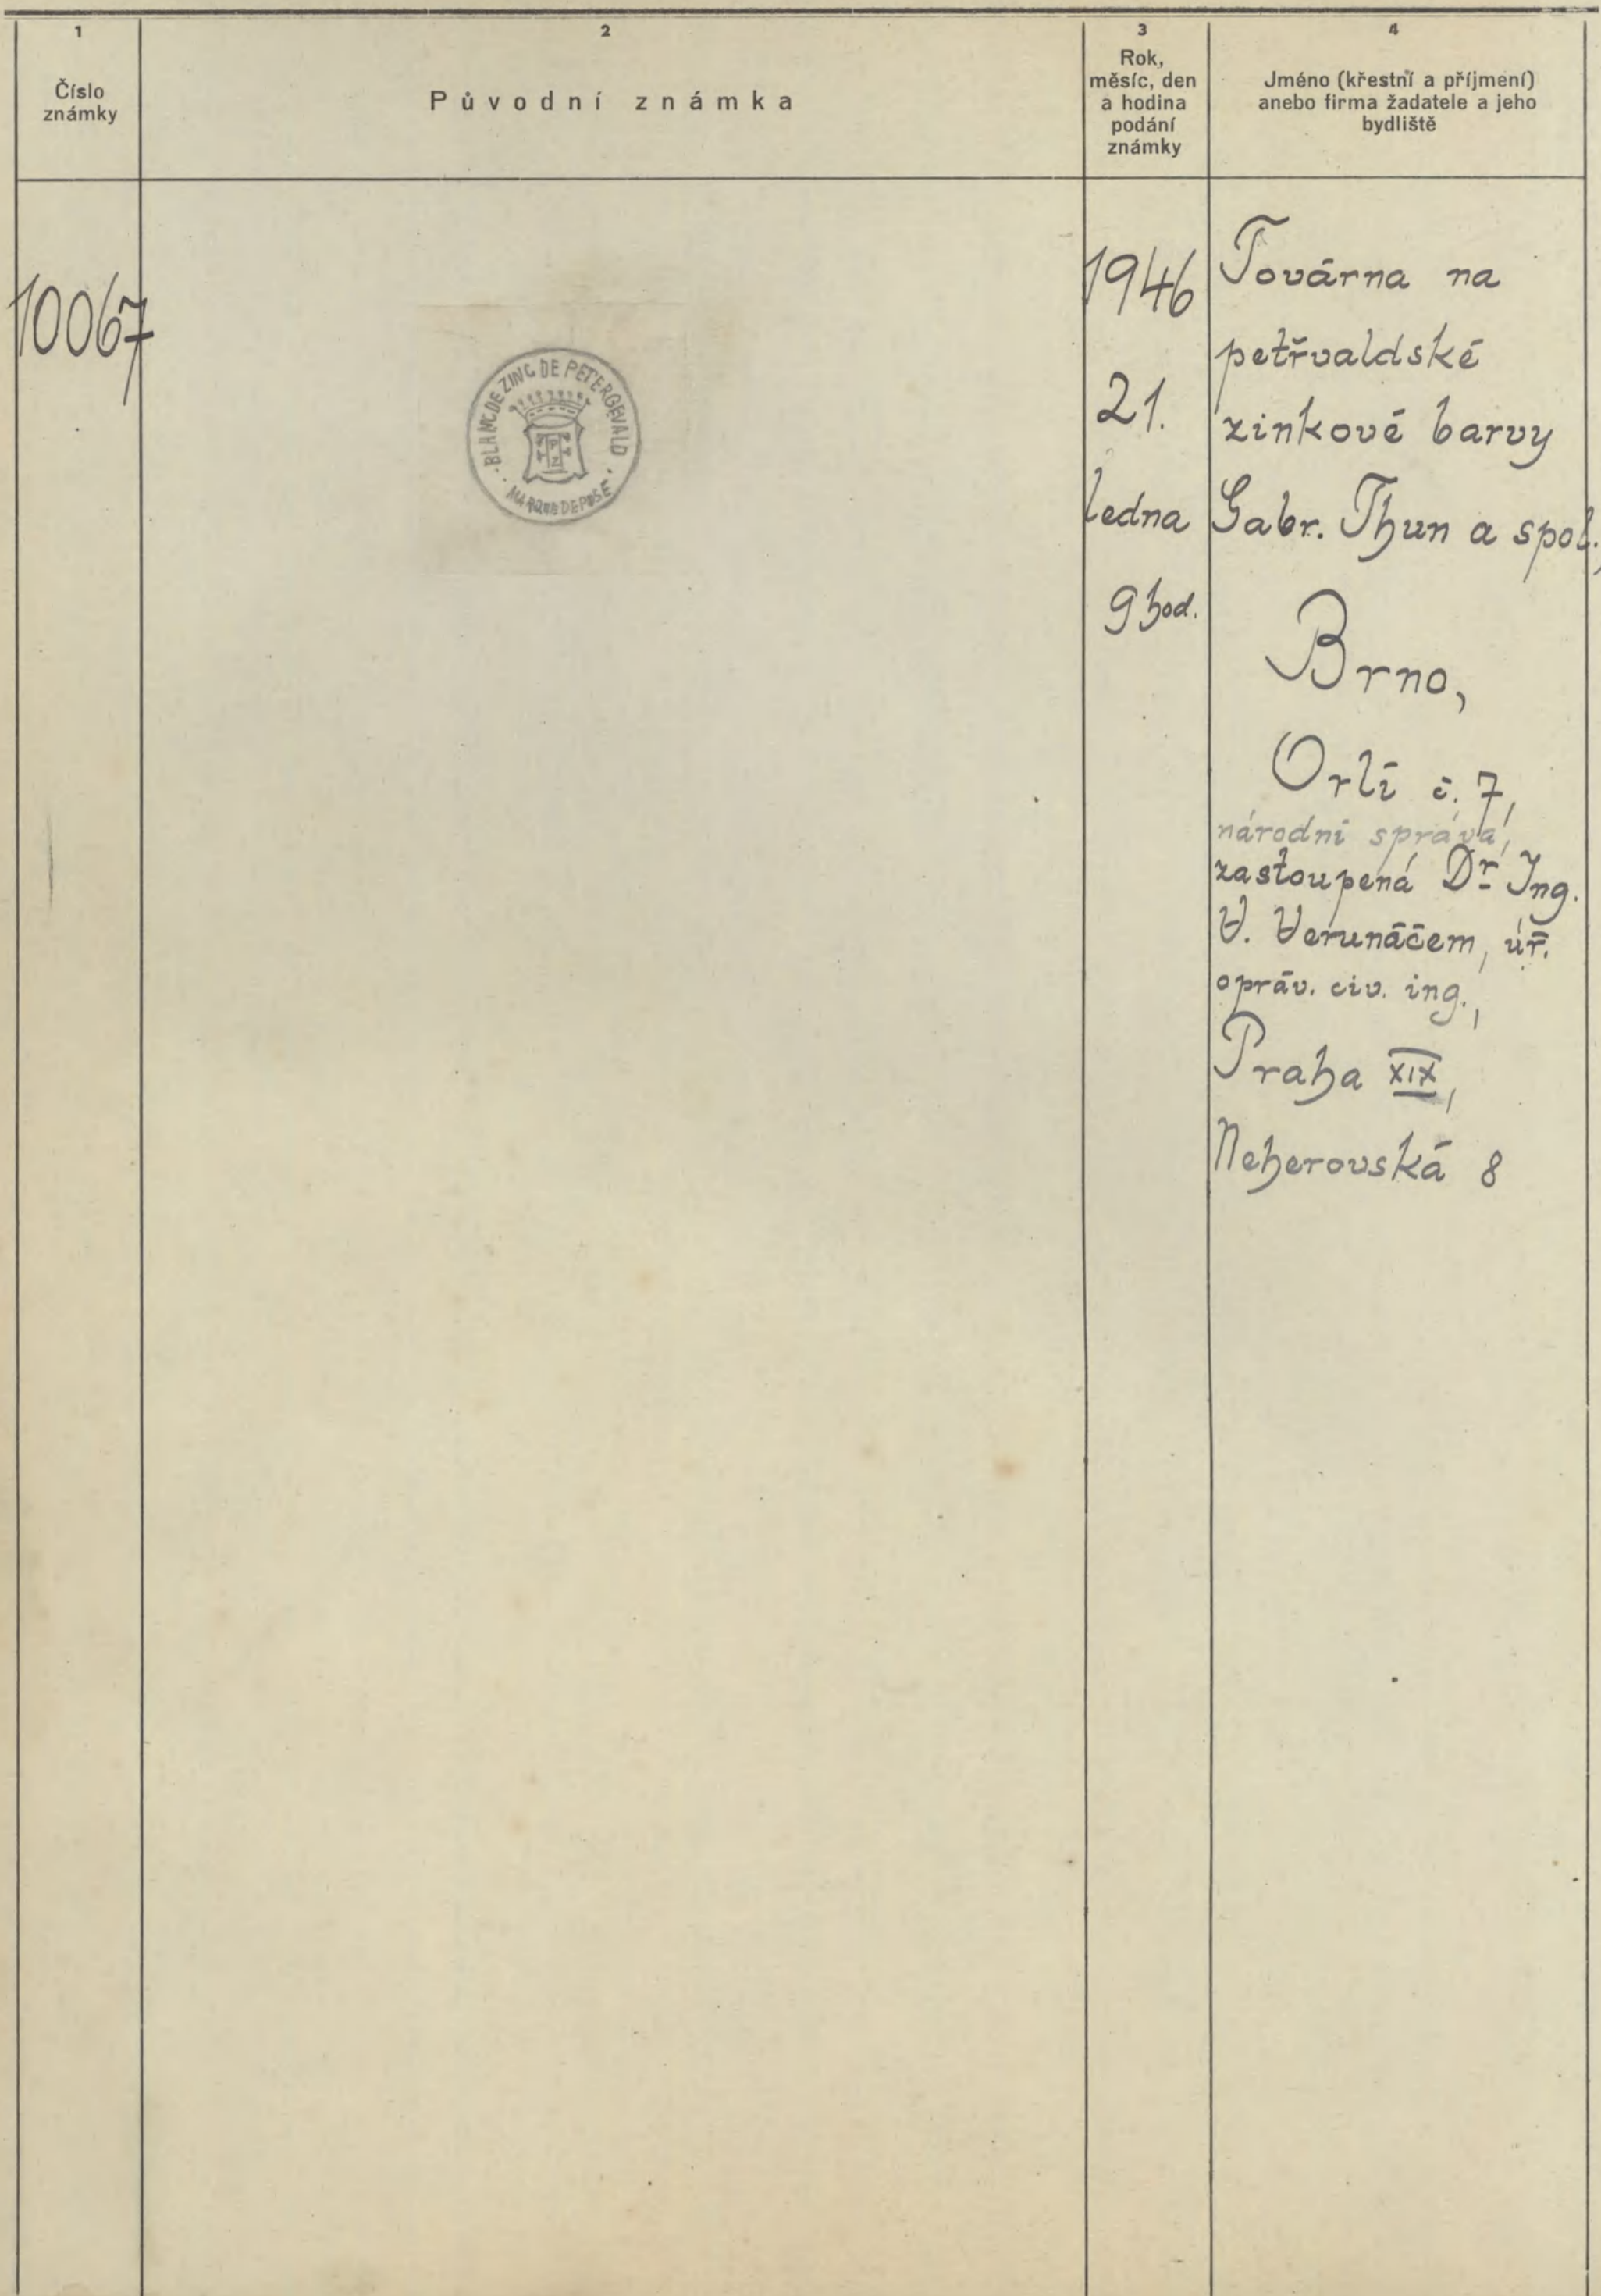 1
Číslo
známky
2
Původní známka
3
Rok,
měsíc, den
a hodina
podání
známky
4
Jméno (křestní a příjmení)
anebo firma žadatele a jeho
bydliště
10067
· BLANC DE ZINC DE PETERGEWALD ·
MARQUE DEPOSÉ
1946
21.
ledna
9 hod.
Továrna na
petřvaldské
zinkové barvy
Gabr. Thun a spol.,
Brno,
Orlí č. 7,
národní správa,
zastoupená Dr Ing.
V. Verunáčem, úř.
opráv. civ. ing.,
Praha XIX,
Neherovská 8